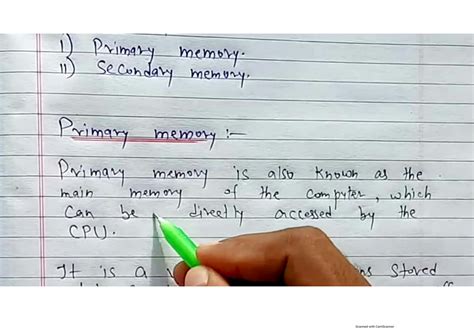 I) Primary memory.
II) Secondary memory.
Primary memory :-
Primary memory is also known as the
main memory of the computer, which
can be directly accessed by the
CPU.
It is a
stored
Scanned with CamScanner